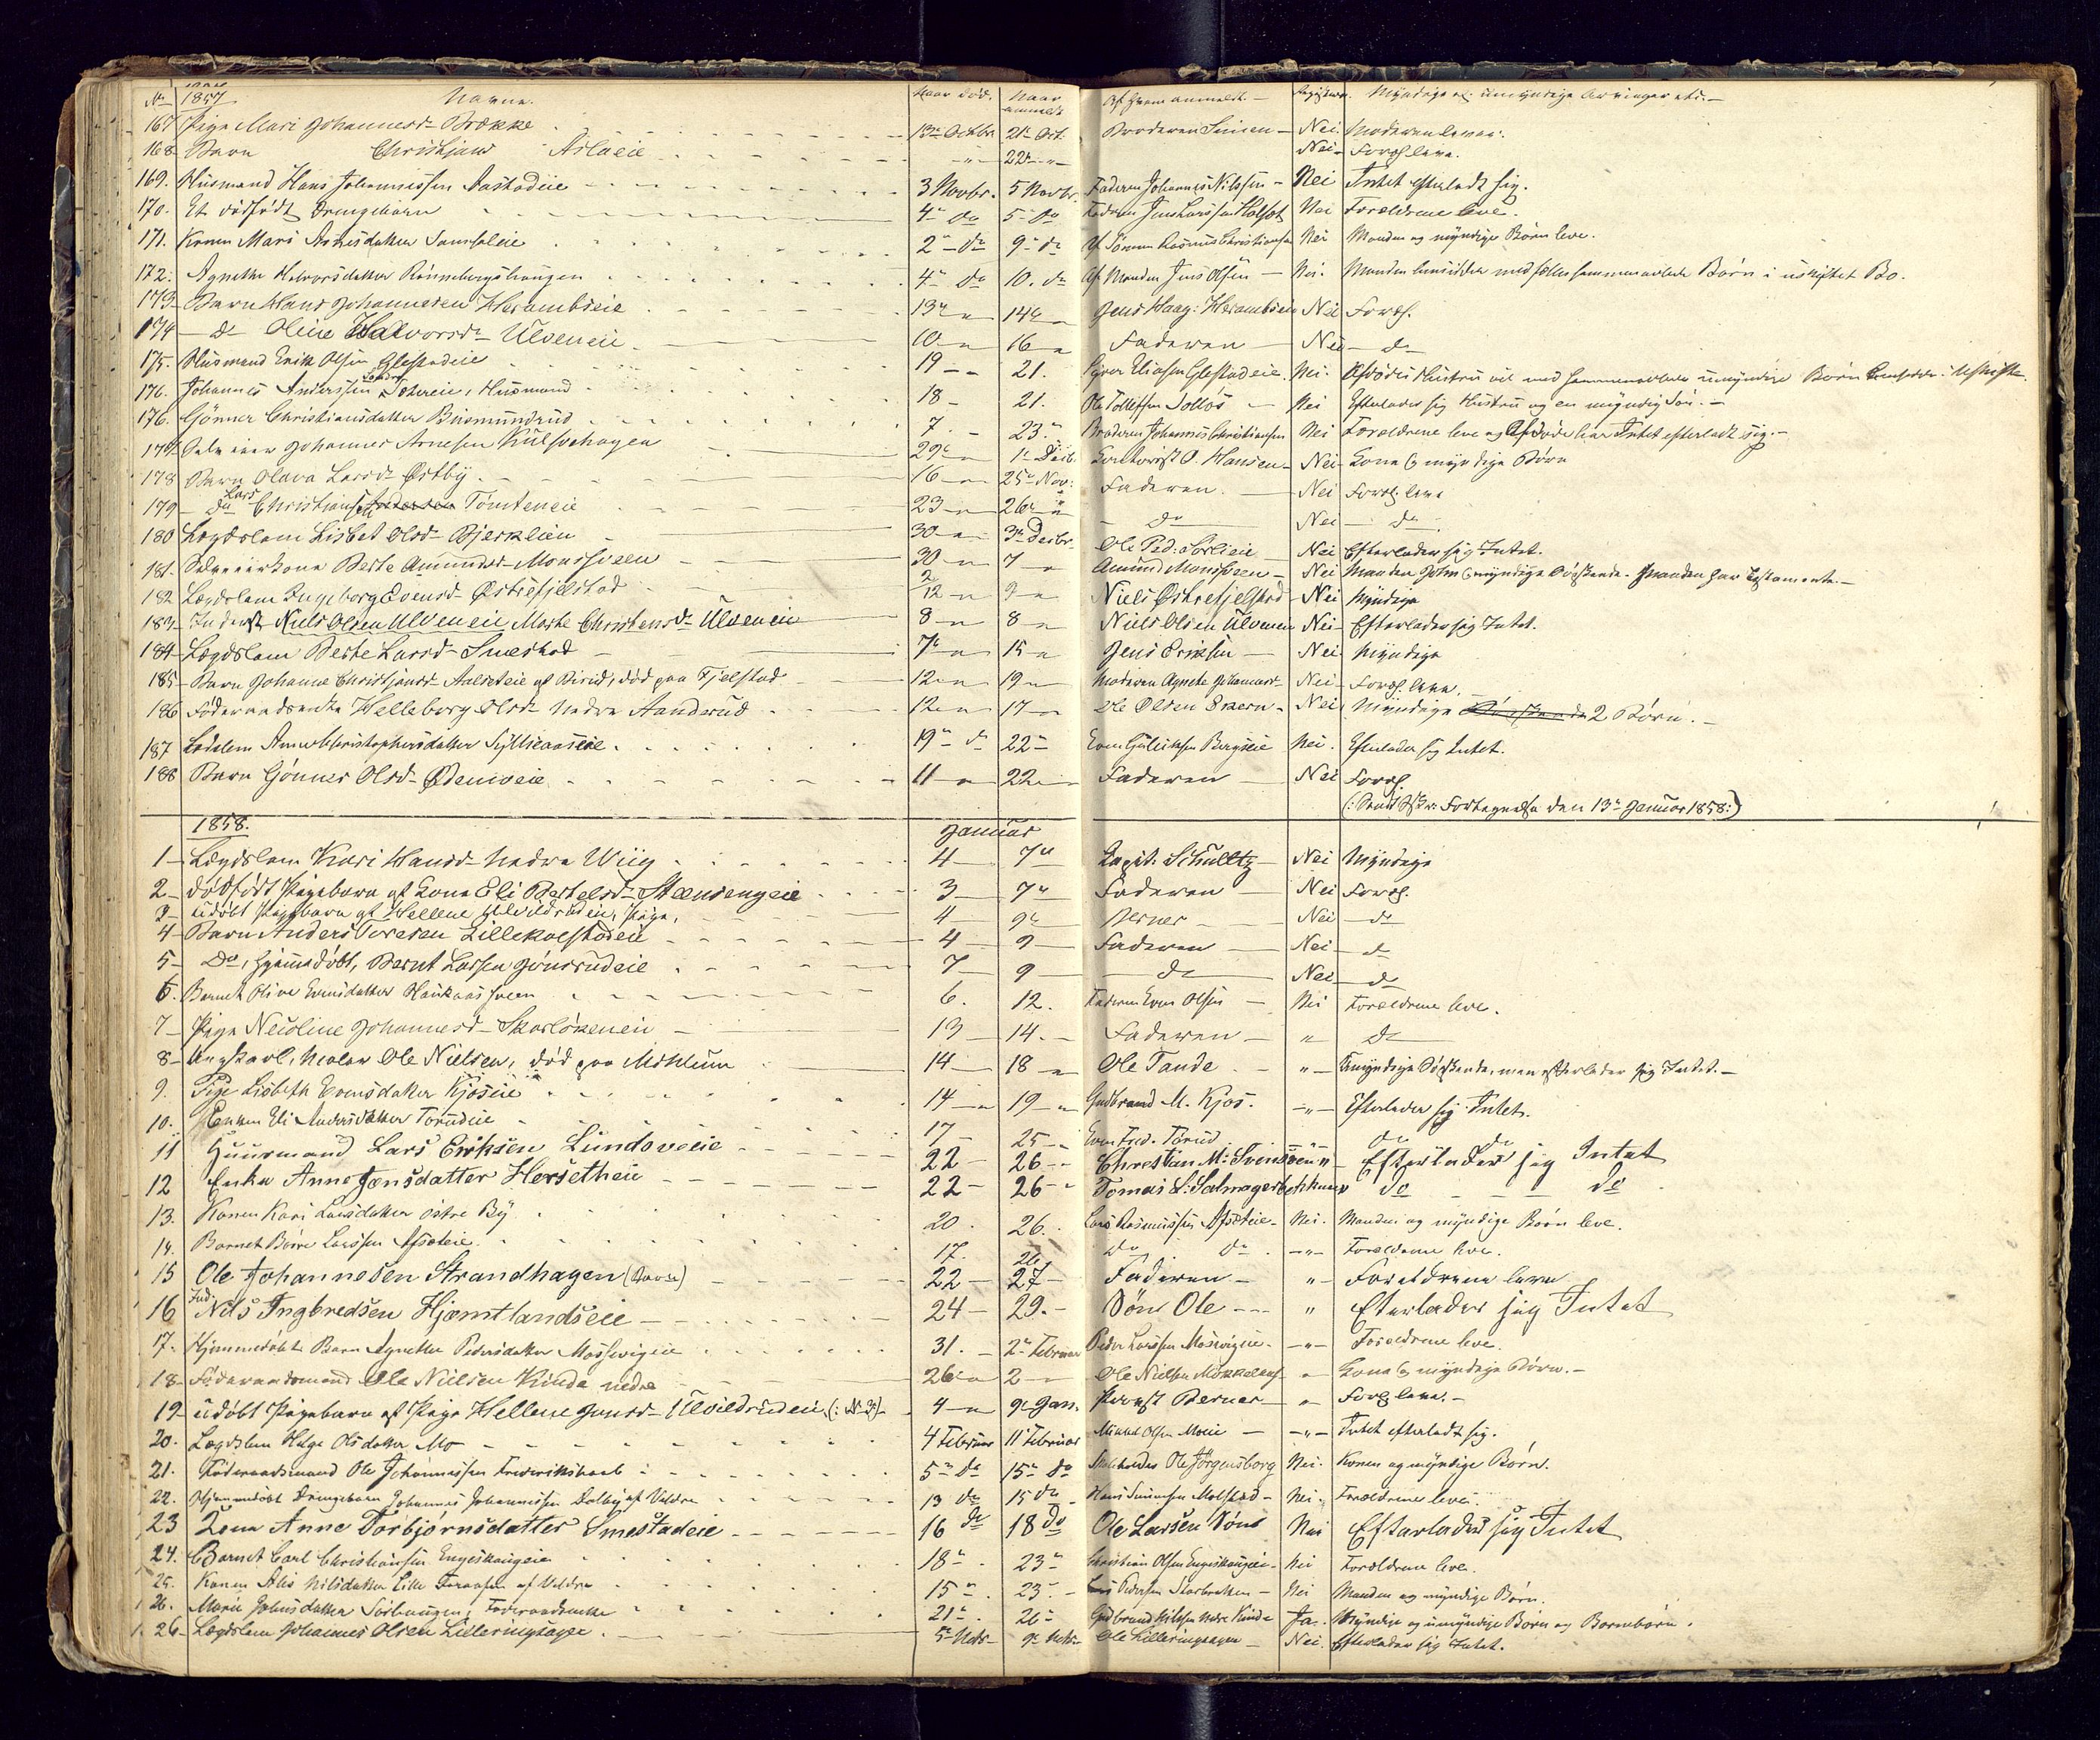 No 1857 Navne. Naar död. Naar anmeldt Af Hvem anmeldt. Myndige og umyndige Arvinger etc.
167 Pige Mari Johannesd. Brække 13de Octbr 21 Oct. Broderen Simen Nei. Moderen lever.
168 Barn Christjans Aslaeie " 22 " Nei Foræl. leve.
169. Huusmand Hans Johannessen 3 Novbr. 5 Novbr. Faderen Johannes Nilssen Nei Intet efterladt sig.
170. Et dödfödt Drengebarn 4 do 5 do Faderen Jens Larssen Nei Forældrene leve.
171. Konen Mari 2 do 9 do Af Sönnen Rasmus Christiansen Nei Manden og myndige Börn leve.
172. Agnethe Halvorsdatter Rönnebergshaugen 4 do 10. do Af Manden Jens Olsen Nei. Manden hensidder med fælles sammenavlede Börn i uskiftet Bo.
173 Barn Hans Johannesen Herambseie 13 " 14 " Jens Haag: Herambseie Nei Foræl.
174 do Oline Halvorsd. Ulveneie 10 " 16 " Faderen Nei do
175. Huusmand Erik Olsen Glestadeie 19 21. Glestadeie. Nei. Afdödes Hustru umyndige Börn
176. Johannes Anderssen Huusmand 18 21. Ole Tollefsen Nei Efterlader sig Hustru og en myndig Sön.
176. Gönner Christiansdatter Bismundrud 7. 23. Broderen Johannes Christiansen Nei Forældrene leve og Afdöde har Intet efterladt sig.
177 Johannes Arnesen Kulsvehagen 29 " 1 Decb. O. Hansen Nei Kona & myndige Börn
178 Barn Olava Larsd. Östby 16 25 Nov: Faderen. Nei Foræl. leve
179 do Lars Christiansen Tömteneie 23 " 26 " do Nei do
180 Lægdslem Lisbet Olsd. Bjerkleien 30 " 3 Decbr. Ole Ped: Sörlieie Nei Efterlader sig Intet.
181. Berte Amundsd. Monssveen 30 " 7 " Amund Monssveen Nei Manden John & myndige Söskende. Manden har Testamente.
182 Lægdslem Ingeborg Evensd. Östrefjelstad 2/12 " 9 " Niels Östrefjelstad Nei Myndige
183 Inderst Niels Olsen Ulveneie, Marte Christensd. Ulveneie 8 " 8 " Niels Olsen Ulveneie Nei Efterlader sig Intet.
184 Lægdslem Berte Larsd. Smestad 7 " 15 " Jens Eriksen Nei Myndige
185 Barn Johanne Christjansd. af Birid, död paa Fjelstad 12 " 19 " Moderen Agnete Johannesd. Nei Foræl. leve.
186 Föderaadsenke Helleborg Olsd. Nedre Aanderud 12 " 17 " Ole Olsen Nei Myndige 2 Börn.
187 Anne Christophersdatter 19 do 22 Even Gulliksen Bergseie Nei. Efterlader sig Intet.
188 Barn Gönner Olsd. 11 " 22 Faderen Nei Foræl.
(: Sendt Fortegnelse den 13 Januar 1858:)
1858. Januar
1 Lægdslem Kari Hansd. Nedre Wiig 4 7 Capit. Schultz Nei Myndige
2 dödfödt Pigebarn af Kona Eli Bertelsd. Stænsengeie 3 7 Faderen Nei Foræl.
3 udöbt Pigebarn af Hellene Ulvildrudeie, Pige, 4 9 Berner Nei do
4 Barn Anders Toresen Lillekolstadeie 4 9 Faderen Nei do
5 Do, Hjemmedöbt, Bernt Larsen Jönsrudeie 7 9 do Nei do
6. Barnet Olive Evensdatter Haukaassveen 6. 12. Faderen Even Olsen Nei Forældrene leve.
7 Pige Nicoline Johannesd. Skarlökeneie 13 14. Faderen " do
8 Ungkarl, Maler Ole Nielsen, död paa Mohlum 14 18 " Ole Tande " Umyndige Söskende, men efterlader sig Intet.
9. Pige Lisbeth Evensdatter Kjoseie 14 " 19 " Gudbrand M. Kjos. " Efterlader sig Intet.
10. Enken Eli Andersdatter Torudeie 17 25 Even Fred. Torud do do
11 Huusmand Lars Eriksen Lundsveeie 22 26 Christian M: " Efterlader sig Intet
12 Enke Anne Jensdatter Hersetheie 22 26 Tomas L: Salmagerbakken do do
13. Konen Kari Larsdatter östre By 20. 26. Lars Rasmussen Nei. Manden og myndige Börn leve.
14. Barnet Börre Larssen 17. 26 do do " Forældrene leve.
15 Ole Johannesen Strandhagen (Barn) 22 27 Faderen " Forældrene leve
16 Ind. Nils Ingbredsen Hjemtlandseie 24 29. Sön Ole " Efterlader sig Intet
17. Hjemmedöbt Barn Agnethe Pedersdatter Mosservigeie 31. 2 Februar Peder Larssen " Forældrene leve.
18 Föderaadsmand Ole Nielsen Kinde nedre 26 " 2 Ole Nielsen " Kona & myndige Börn.
19 udöbt Pigebarn af Pige Hellene Jensd. Ulvildrudeie (: No 3:) 4 " 9 Jan. Provst Berner " Foræl. leve.
20. Lægdslem Helge Olsdatter Mo 4 Februar 11 Februar Mikkel Olsen Moeie " Intet efterladt sig.
21. Föderaadsmand Ole Johannessen Frederikshaab 5 do 15 do Ole Jörgensborg Nei. Konen og myndige Börn.
22. Hjemmedöbt Drengebarn Johannes Johannessen Dalby af Veldre 13 do 15 do Hans Simensen Molstad Nei. Forældrene leve.
23 Kona Anne Torbjörnsdatter Smestadeie 16 do 18 do Ole Larsen Sön Nei Efterlader sig Intet
24. Barnet Carl Christiansen Engeshaugeie 18 23 Christian Olsen Engeshaugeie Nei Forældrene leve.
25. Konen Alis Nilsdatter Lille af Veldre 15 23. Lars Pedersen Nei Manden og myndige Börn.
26. Marie Johnsdatter Sörhaugen, Föderaadsenke 21 26 Gudbrand Nilssen Nedre Kinde Ja. Myndige og umyndige Börn og Barnebörn.
26 Lægdslem Johannes Olsen Lilleringsager. 5 9 Ole Lilleringsager Nei. Efterlader sig Intet.